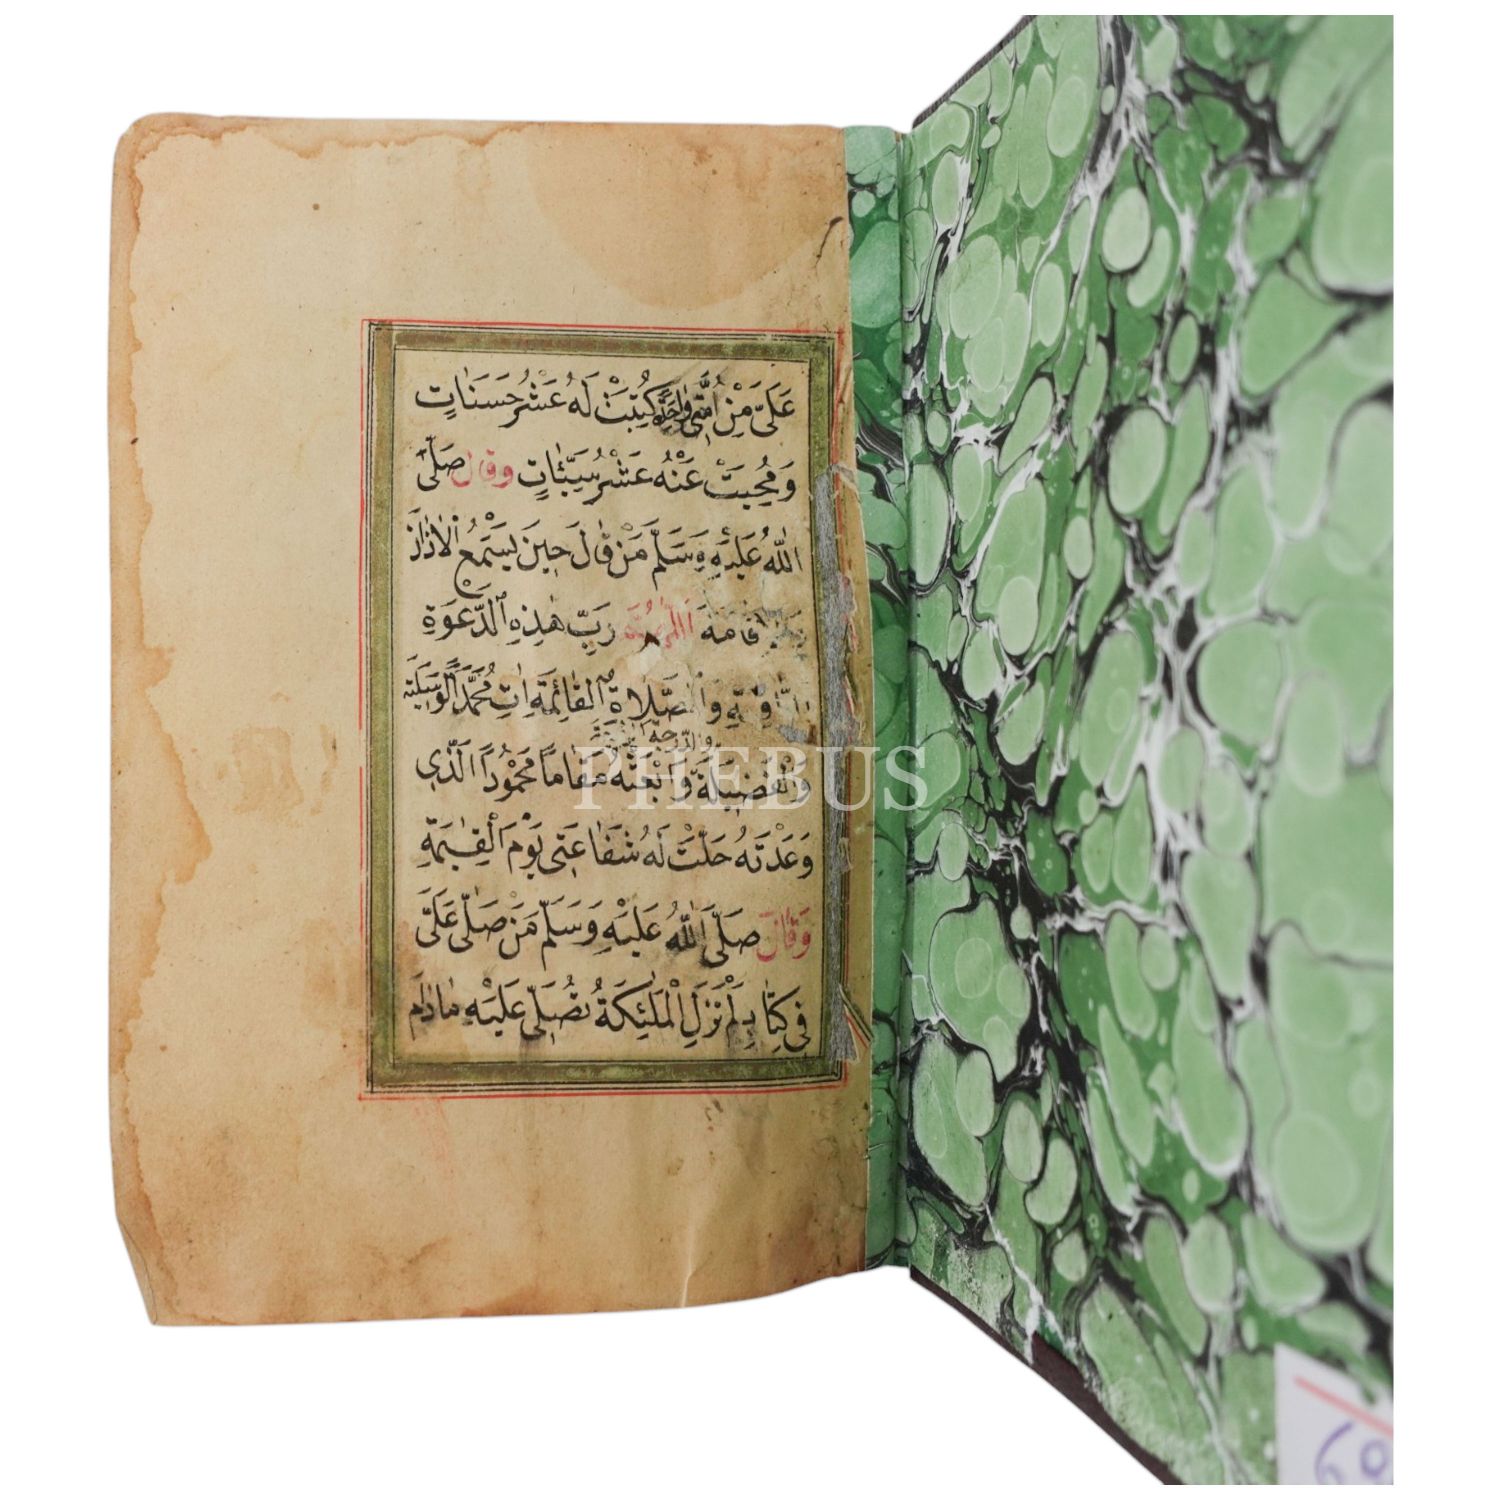 عَلَىَّ مِنْ اُمَّتِى وَاحِدَةً كُتِبَتْ لَهُ عَشْرُ حَسَنَاتٍ
وَمُحِيَتْ عَنْهُ عَشْرُ سَيِّئَاتٍ وَقَالَ صَلَّى
اللّٰهُ عَلَيْهِ وَسَلَّمَ مَنْ قَالَ حِينَ يَسْتَمِعُ الْاَذَانَ
اَللّٰهُمَّ رَبَّ هٰذِهِ الدَّعْوَةِ
وَالصَّلَاةِ الْقَائِمَةِ اٰتِ مُحَمَّدًا الْوَسِيلَةَ
وَالدَّرَجَةَ
وَالْفَضِيلَةَ وَابْعَثْهُ مَقَامًا مَحْمُودًا الَّذِى
وَعَدْتَهُ حَلَّتْ لَهُ شَفَاعَتِى يَوْمَ الْقِيٰمَةِ
وَقَالَ صَلَّى اللّٰهُ عَلَيْهِ وَسَلَّمَ مَنْ صَلَّى عَلَىَّ
فِى كِتَابٍ لَمْ تَزَلِ الْمَلٰئِكَةُ تُصَلِّى عَلَيْهِ مَادَامَ
PHEBUS